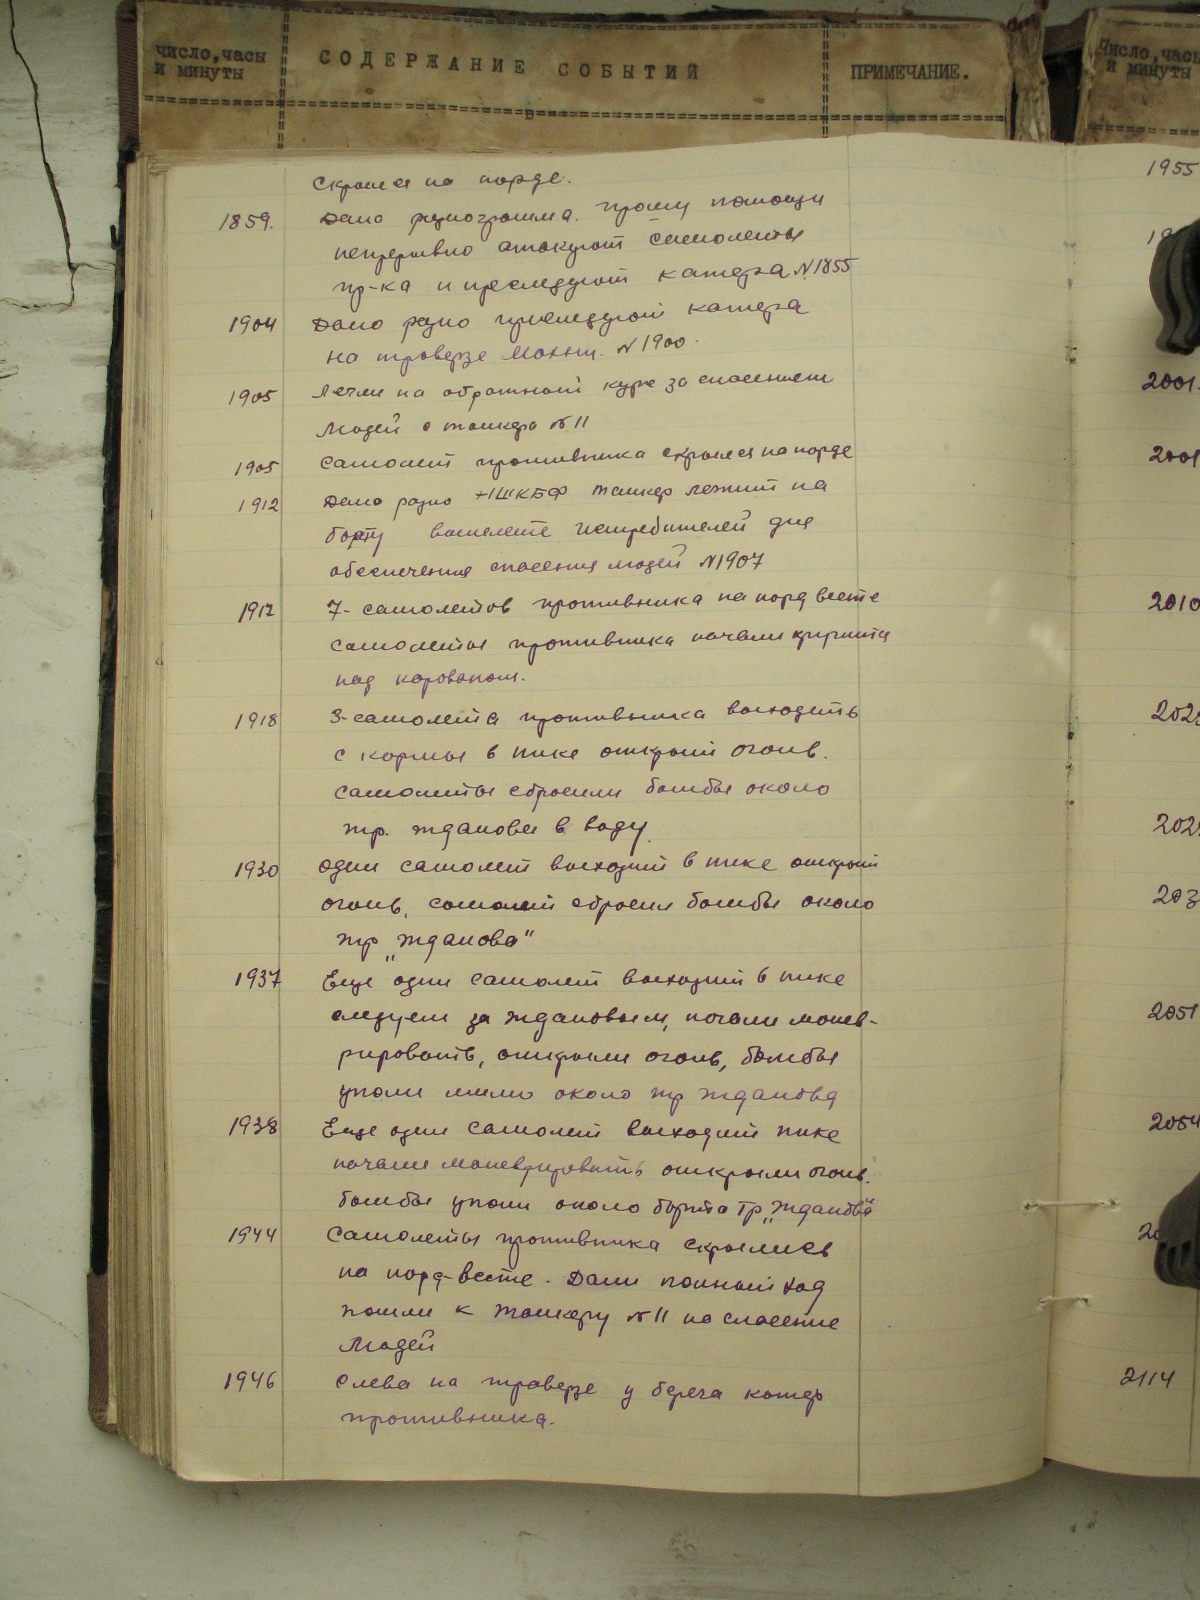 Число, часы
и минуты
СОДЕРЖАНИЕ СОБЫТИЙ
ПРИМЕЧАНИЕ.
Число, часы
и минуты
скрылся на норде.
1859. Дана радиограмма. Прошу помощи
непрерывно атакуют самолеты
пр-ка и преследуют катера N 1855
1904 Дано радио преследуют катера
на траверзе N 1900.
1905 Легли на обратный курс за спасением
людей с танкера N 11
1905 Самолет противника скрылся на норде
1912 Дано радио НШКБФ танкер лежит на
борту вышлете истребителей для
обеспечения спасения людей N1907
1917 7-самолетов противника на норд весте
самолеты противника начали кружится
над караваном.
1918 3-самолета противника выходить
с кормы в пике открыт огонь.
самолеты сбросили бомбы около
тр. Жданова в воду.
1930 один самолет выходит в пике открыт
огонь, самолет сбросил бомбы около
тр „Жданова“
1937 Еще один самолет выходит в пике
следуем за Ждановым, начали манев-
рировать, открыли огонь, бомбы
упали мимо около тр Жданова
1938 Еще один самолет выходит пике
начали маневрировать открыли огонь.
бомбы упали около борта Тр „Жданова“
1944 Самолеты противника скрылись
на норд-весте. Дали полный ход
пошли к танкеру N 11 на спасение
людей
1946 Слева на траверзе у берега катер
противника.
1955
2001.
2001
2010
2051
2054
2114